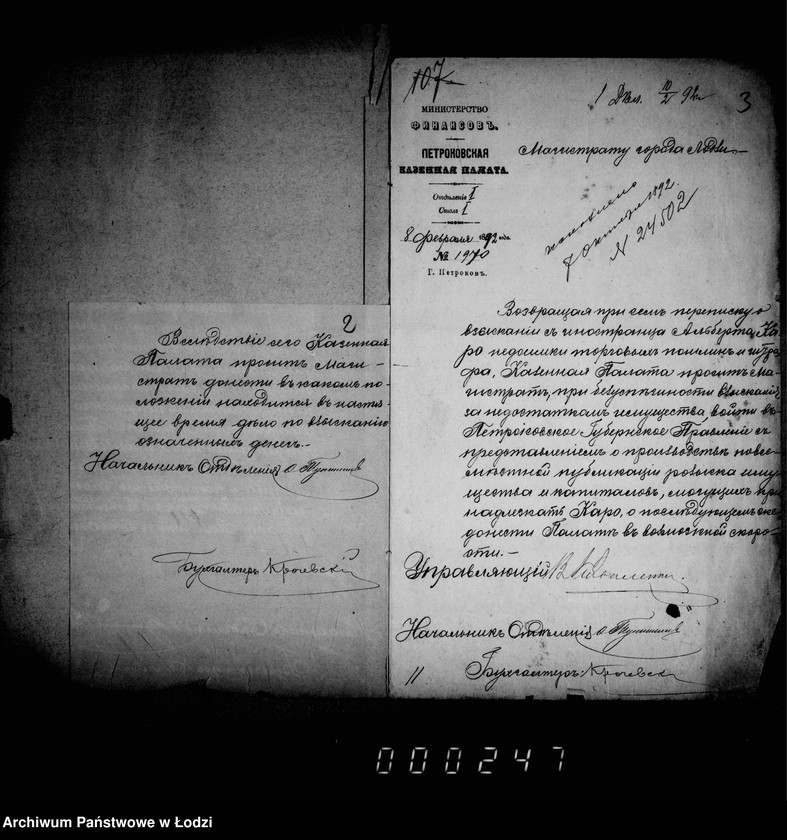 2
Вслѣдствіе сего Казенная
Палата проситъ Маги-
стратъ донести въ какомъ по-
ложеніи находится въ настоя-
щее время дѣло по взысканію
означенныхъ денегъ.-
Начальникъ Отдѣленія
Бухгалтеръ
107
1 Дѣл. 10/2 92 г.
3
МИНИСТЕРСТВО
ФИНАНСОВЪ.
ПЕТРОКОВСКАЯ
КАЗЕННАЯ ПАЛАТА.
Отдѣленіе I
Столъ I
8 февраля 1892 года.
№ 1970
Г. Петроковъ.
Магистрату города Лодзи
7 октября 1892.
N 24502
Возвращая при семъ переписку о
взысканіи съ иностранца Альберта Ка-
ро недоимки торговыхъ пошлинъ и штра-
фа, Казенная Палата проситъ Ма-
гистратъ, при безуспѣшности взысканія
за недостаткомъ имущества войти въ
Петроковское Губернское Правленіе съ
представленіемъ о производствѣ повсе-
мѣстной публикаціи розыска иму-
щества и капиталовъ, могущихъ при-
надлежать Каро, о послѣдующемъ же
донести Палатѣ въ возможной скоро-
сти.-
Управляющій
Начальникъ Отдѣленія
Бухгалтеръ
000247
Archiwum Państwowe w Łodzi